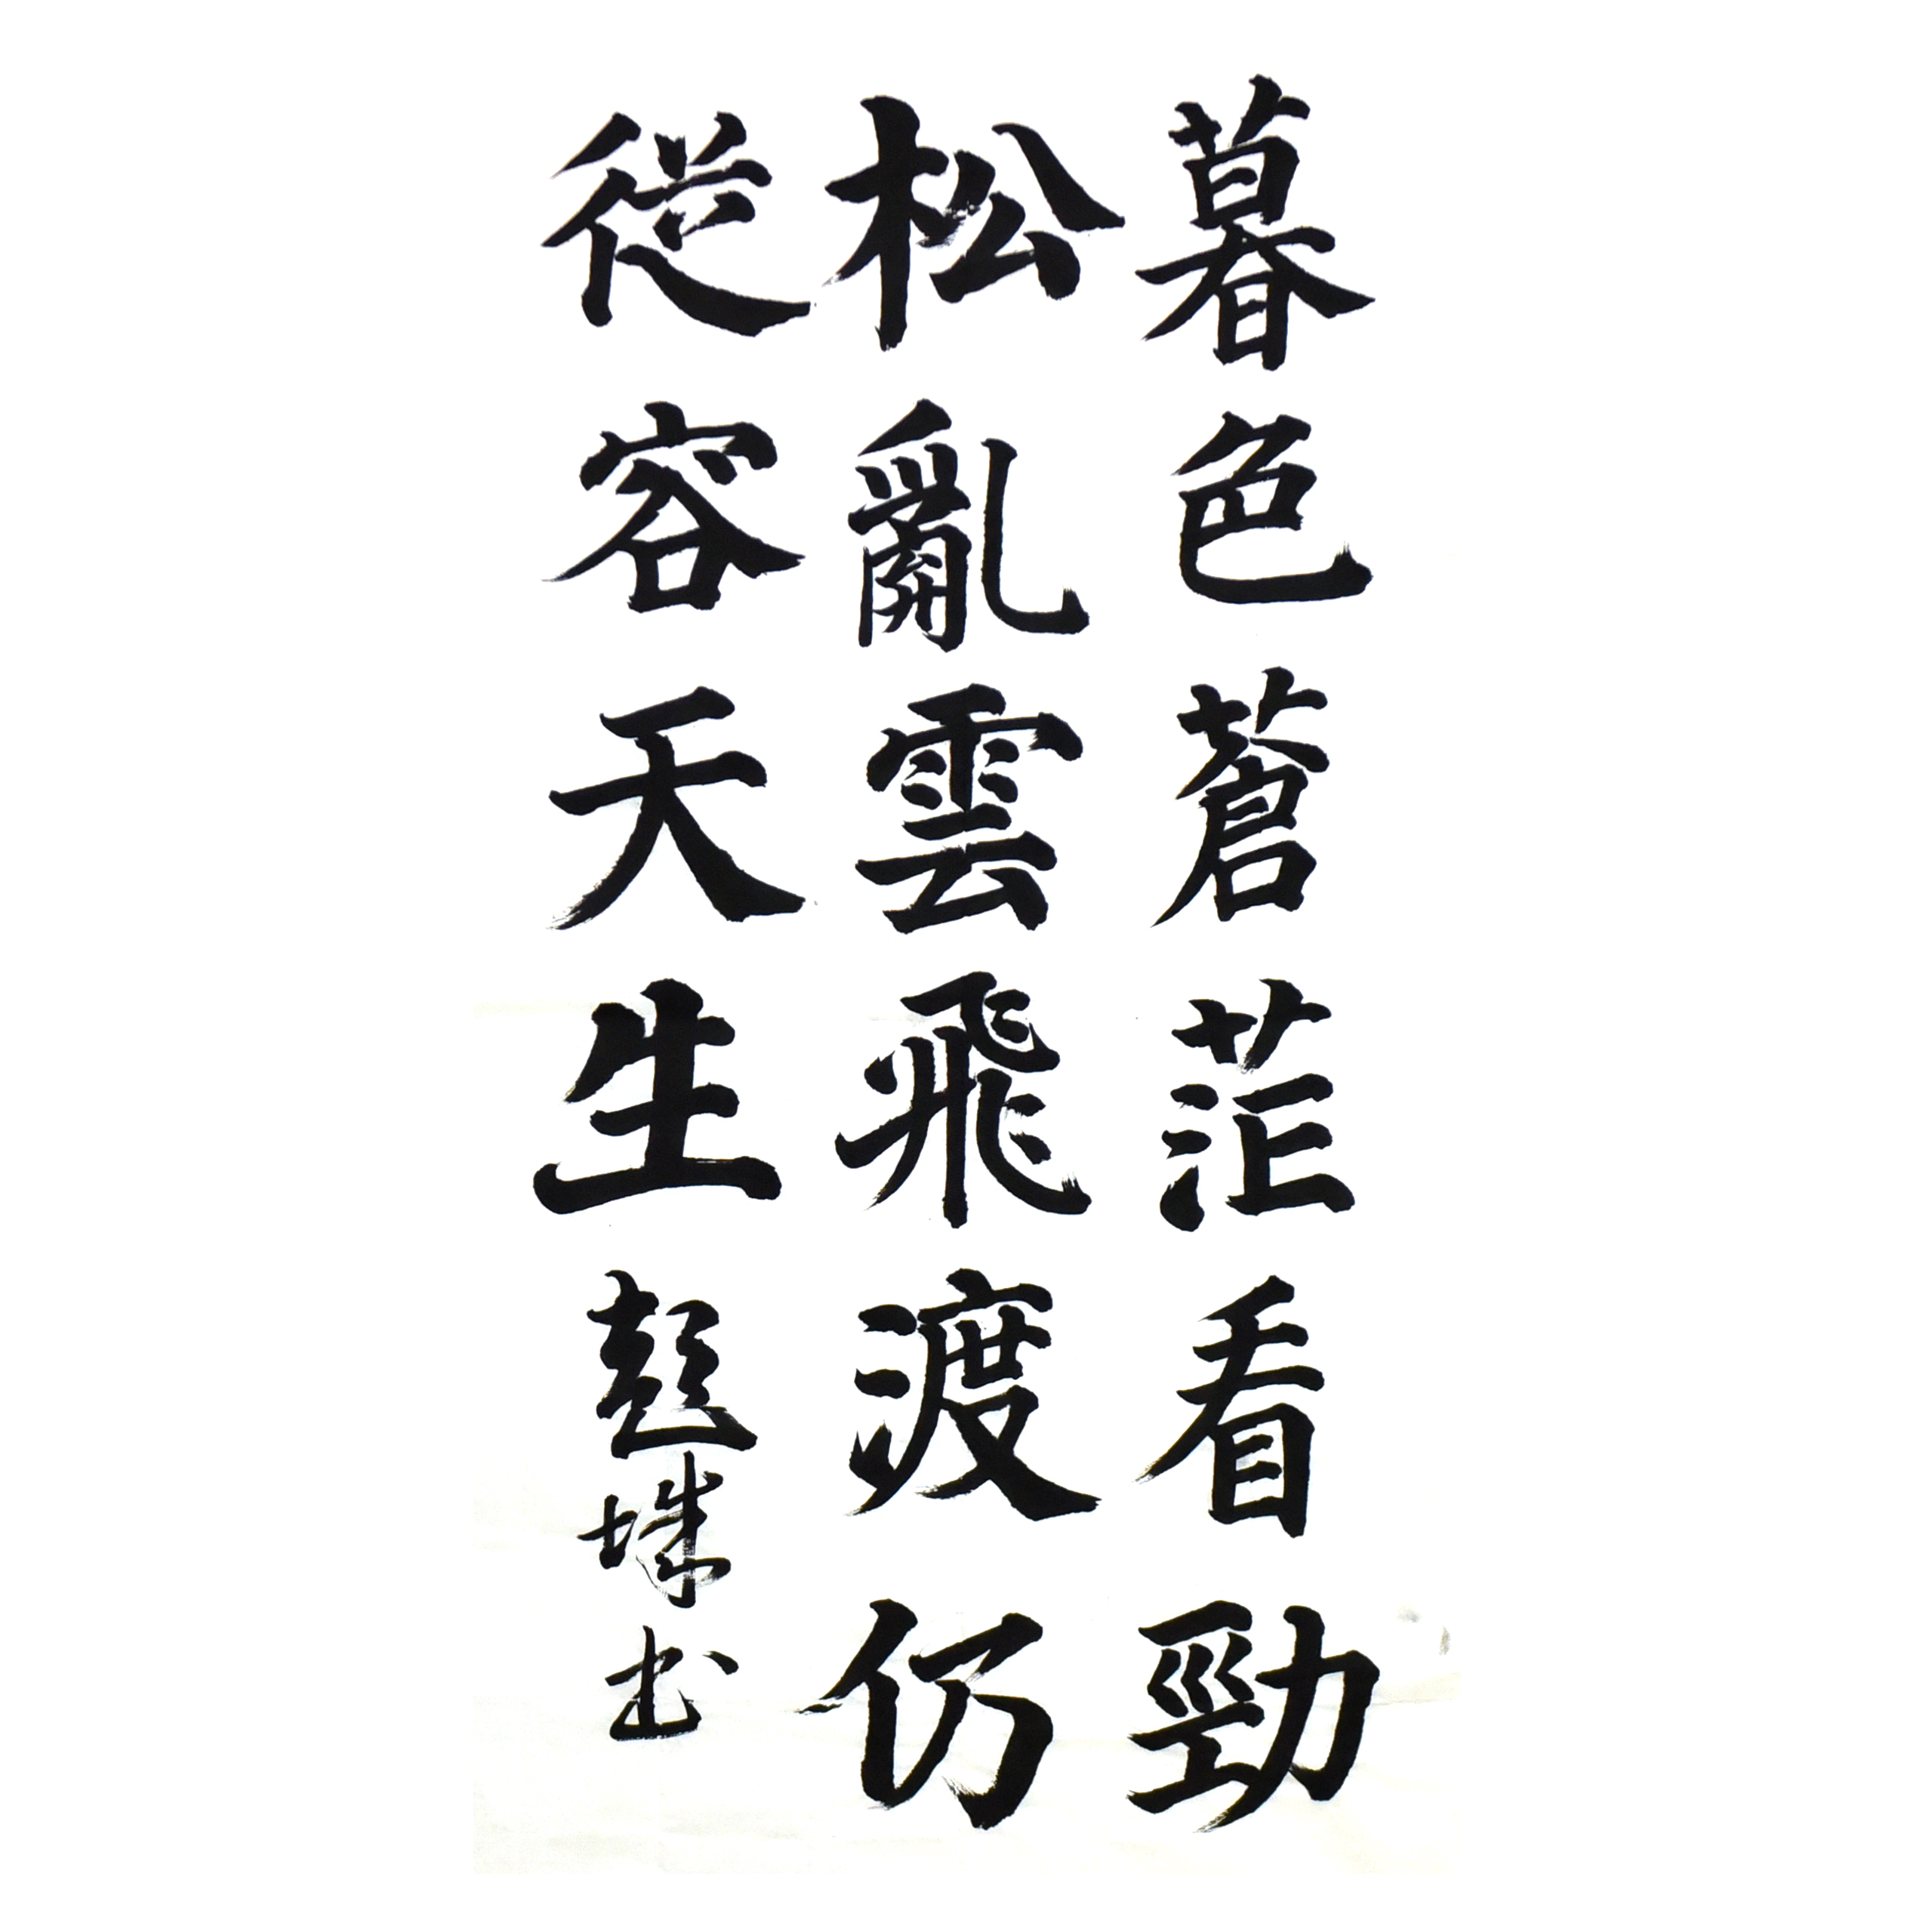 暮色蒼茫看勁
松亂雲飛渡仍
從容天生
书